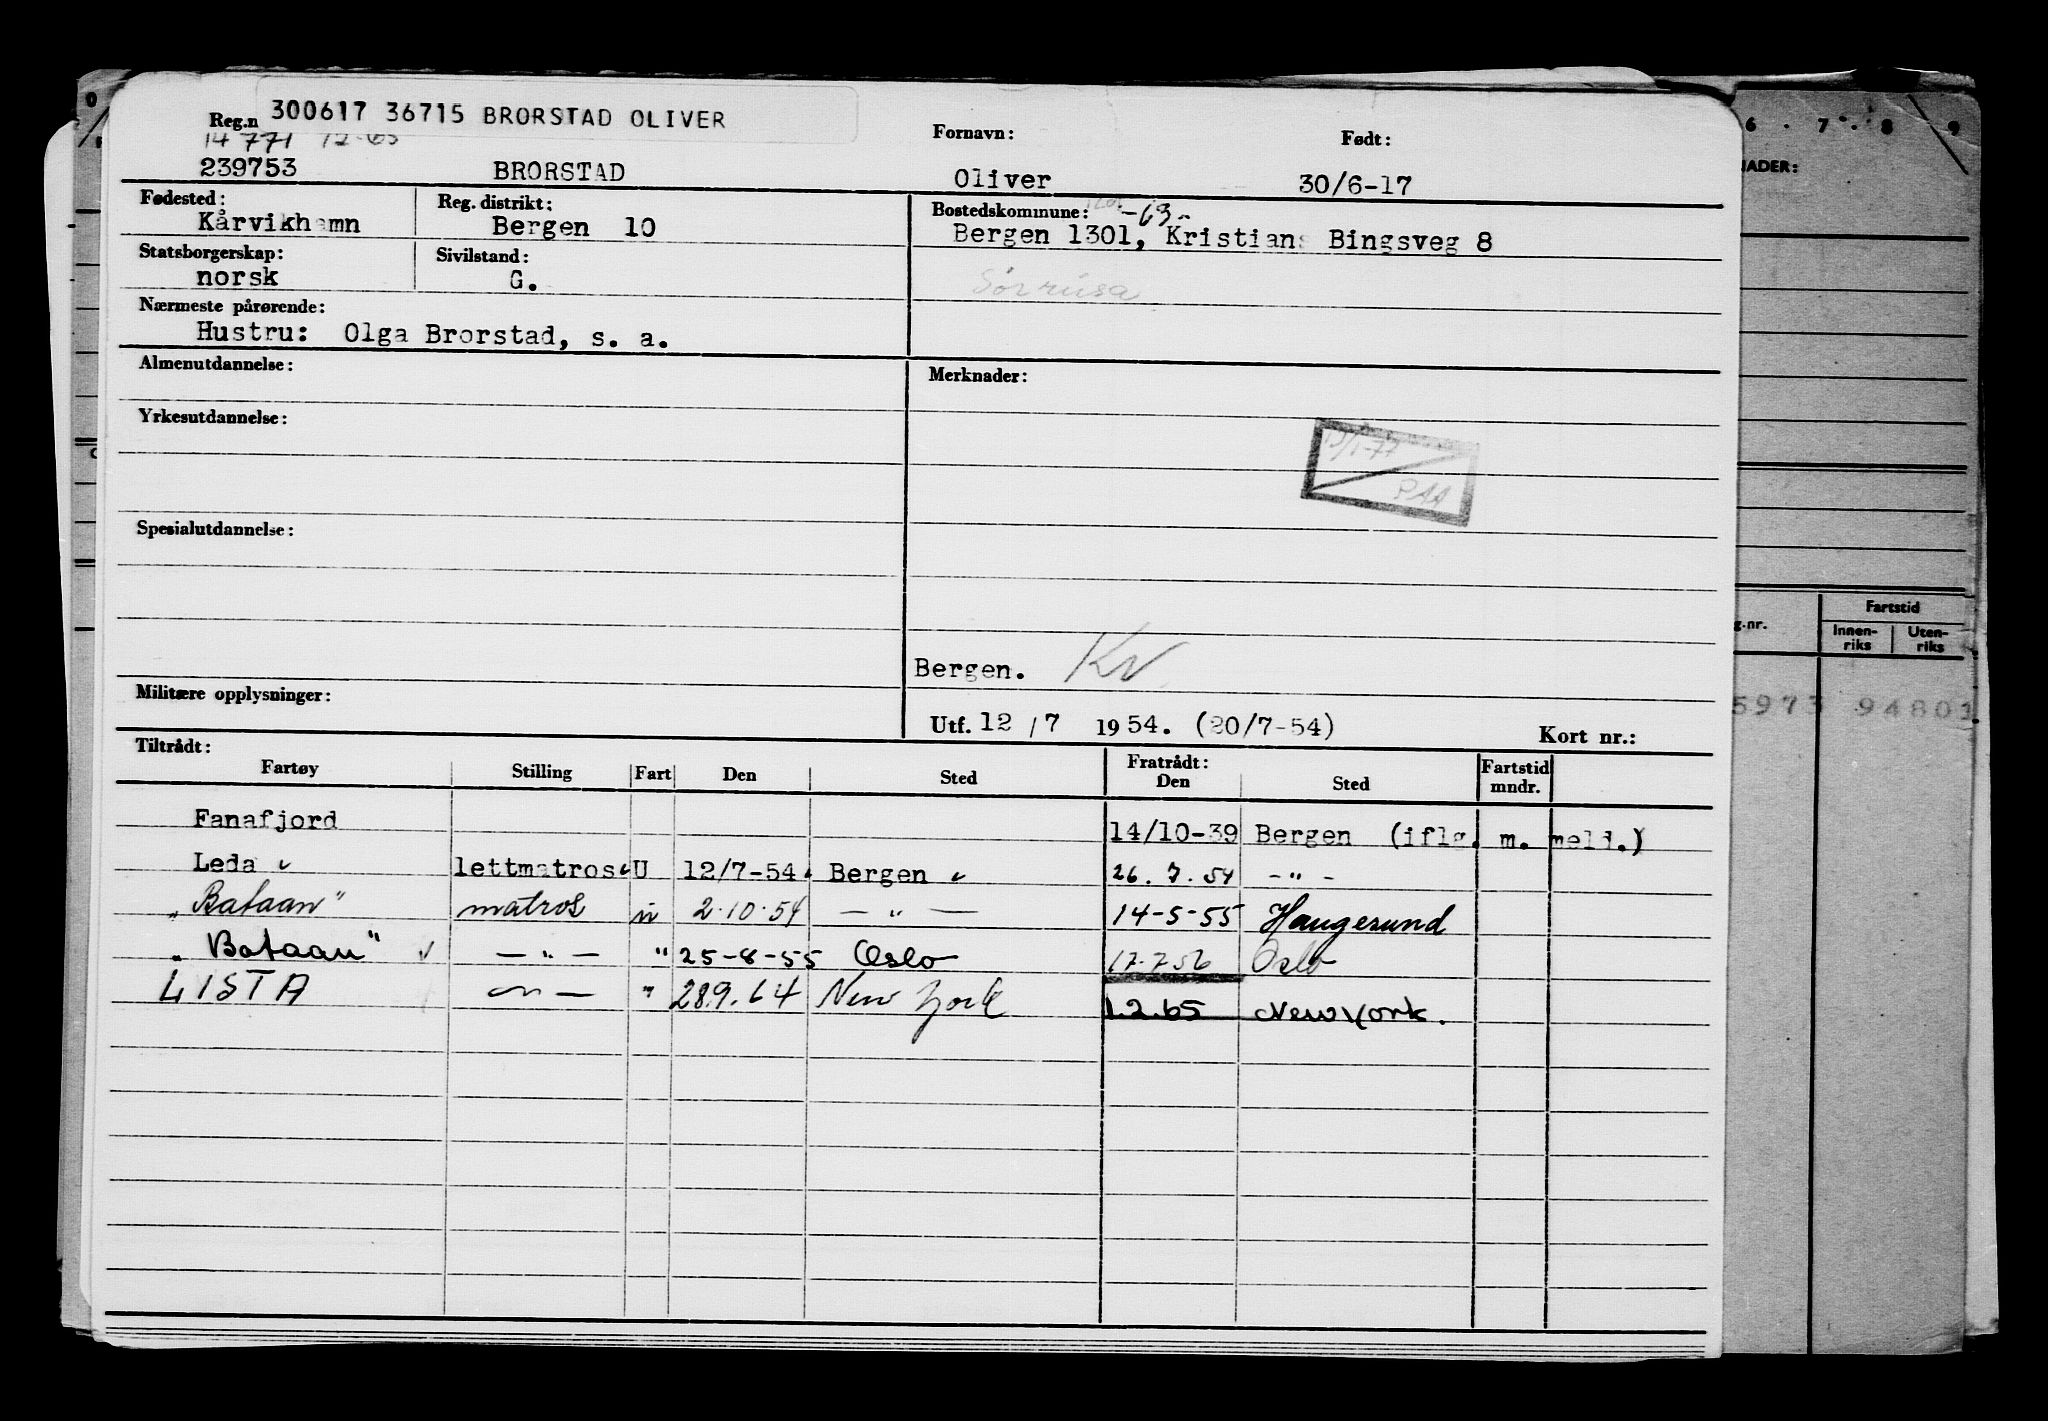 300617 36715 BRORSTAD OLIVER
Reg.n
14 771 12-65
Fornavn:
Født:
239753 BRORSTAD Oliver 30/6-17
Fødested: Reg. distrikt: Bostedskommune: -63-
Kårvikhamn Bergen 10 Bergen 1301, Kristians Bingsveg 8
Statsborgerskap: Sivilstand:
norsk G.
Nærmeste pårørende:
Hustru: Olga Brorstad, s. a.
Almenutdannelse: Merknader:
Yrkesutdannelse:
PAA
Spesialutdannelse:
Bergen. KV
Militære opplysninger:
Utf. 12 / 7 1954. (20/7-54) Kort nr.:
Tiltrådt: Fratrådt:
Fartøy Stilling Fart Den Sted Den Sted Fartstid mndr.
Fanafjord 14/10-39 Bergen (iflg. m. meld.)
Leda lettmatros U 12/7-54 Bergen 26.7.54 - " -
"Bataan" matros u 2.10.54 - " - 14-5-55 Haugesund
"Bataan" - " - " 25-8-55 Oslo 17.7.56 Oslo
LISTA - " - " 28.9.64 New York 1.2.65 New York.
0
6 . 7 . 8 9
NADER:
Fartstid
g.nr. Innen-riks Uten-riks
5973 94801